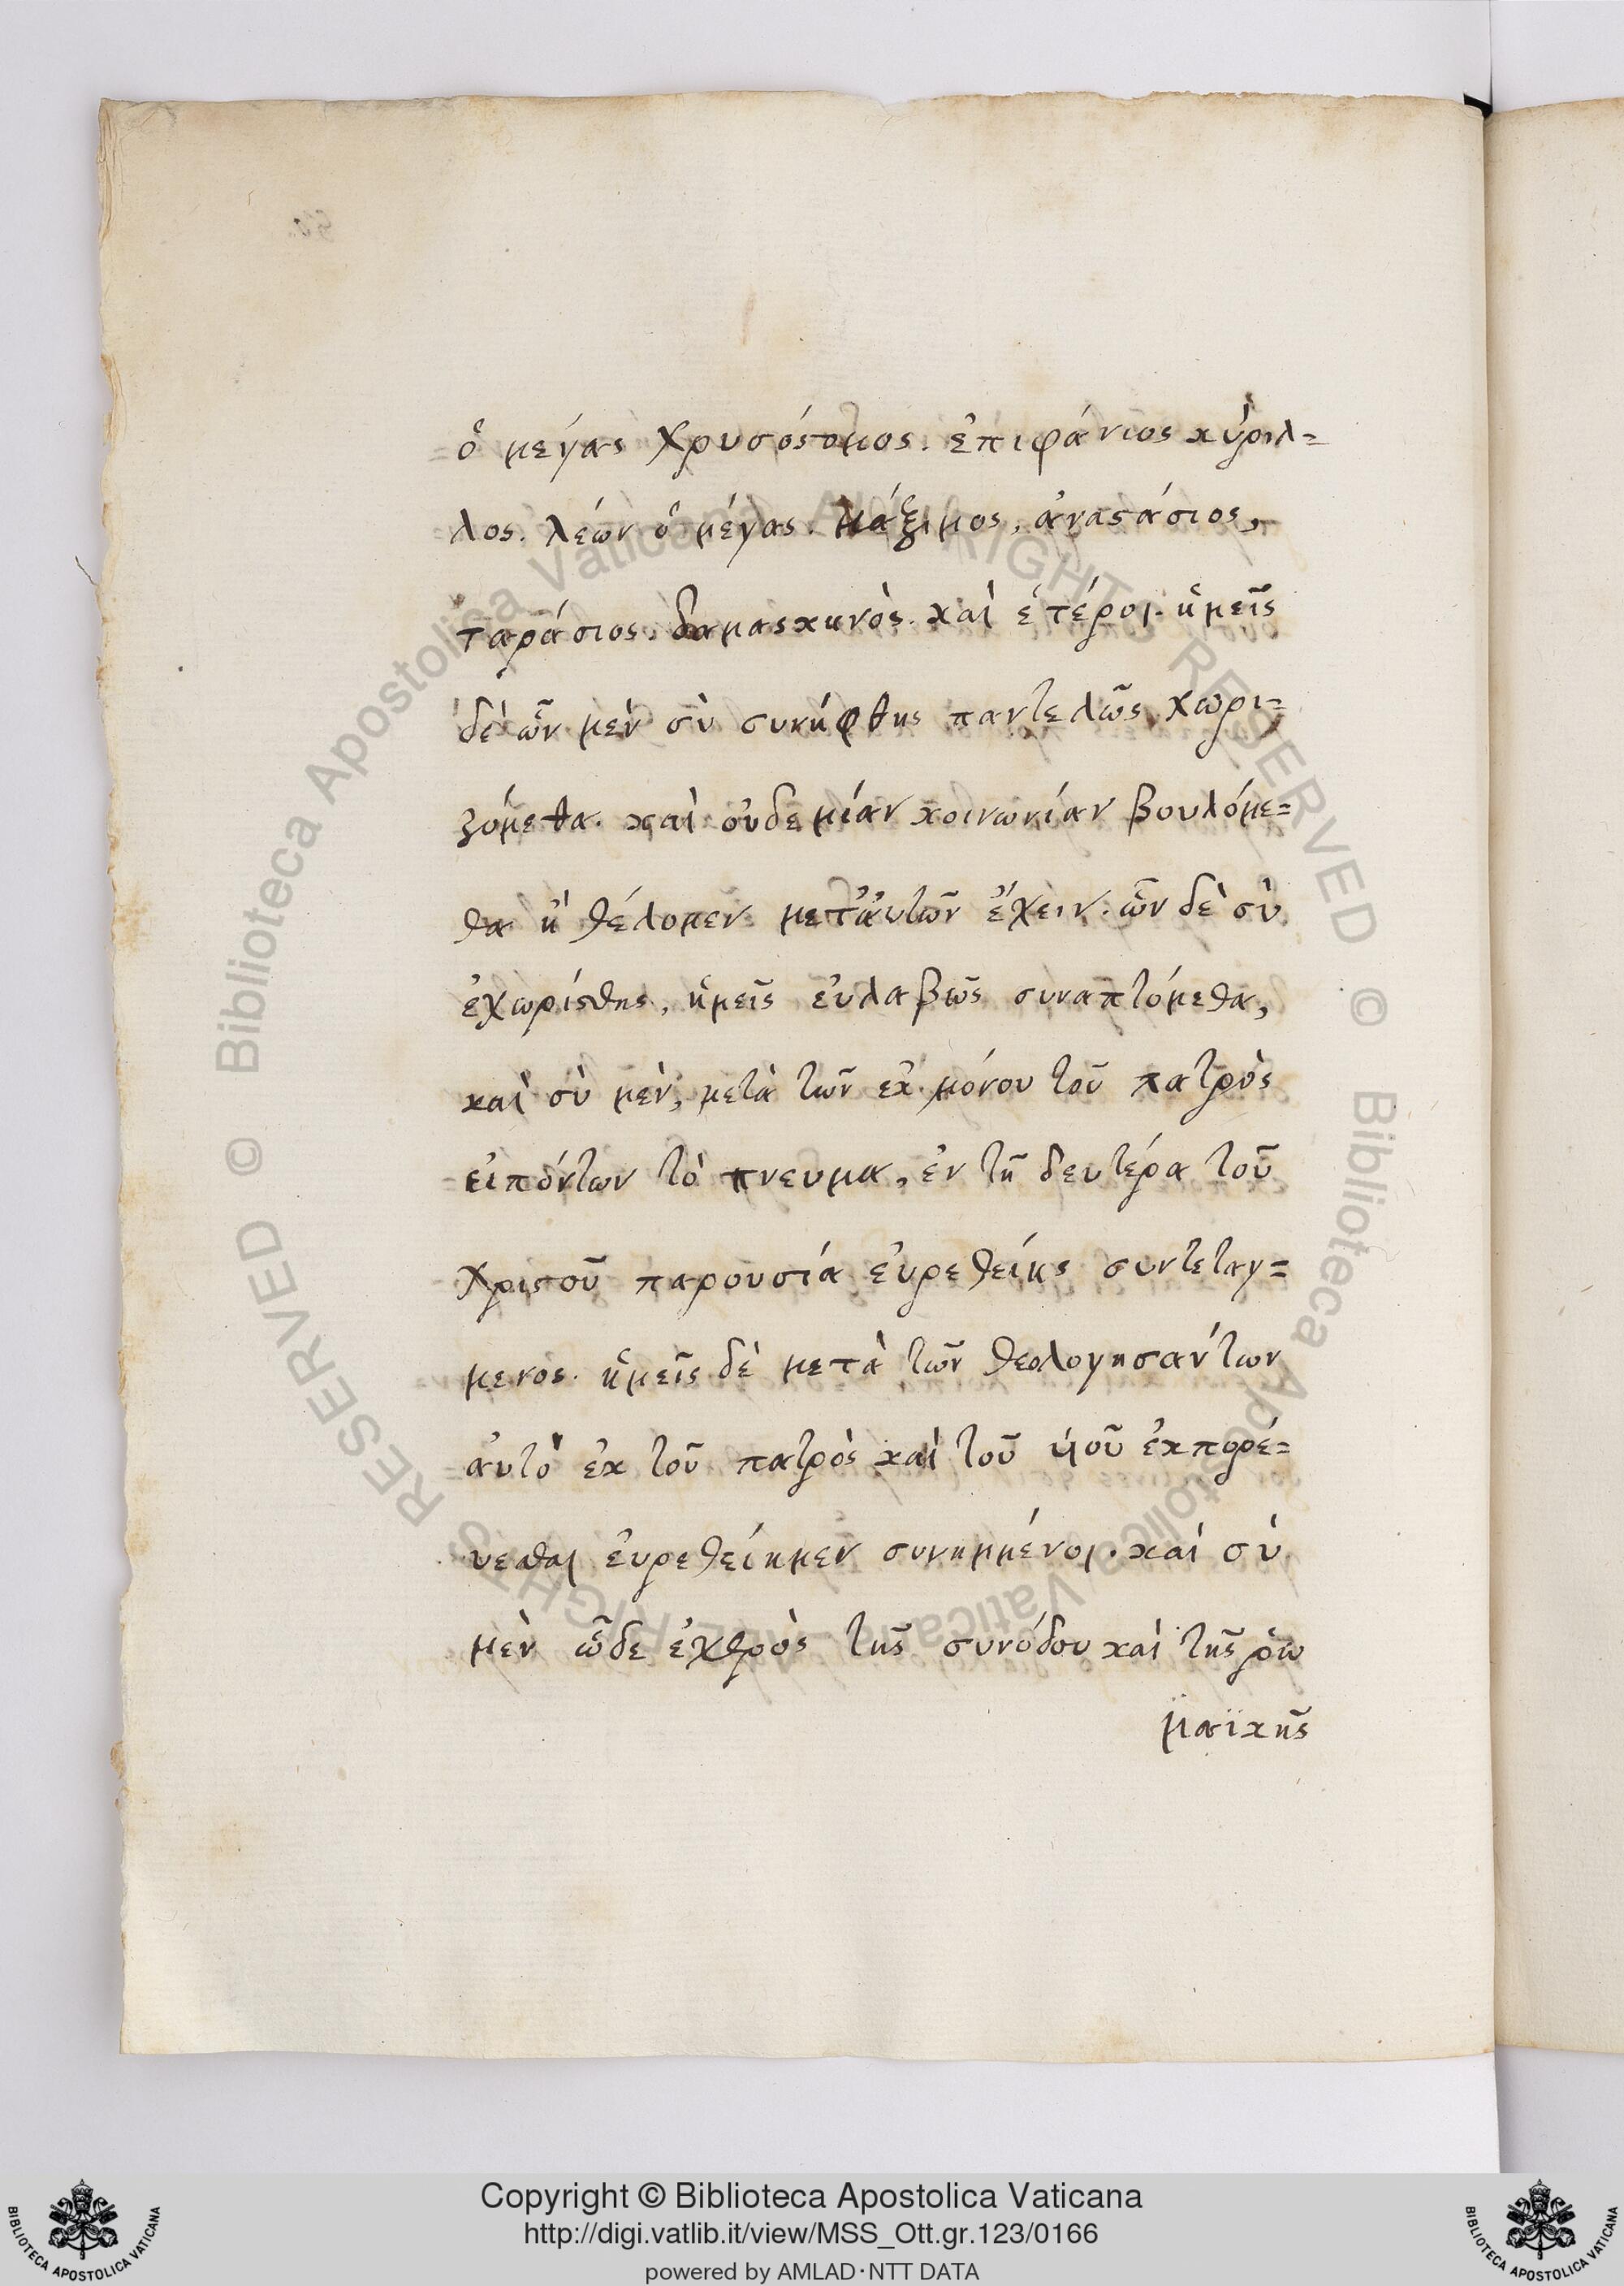 ὁ μεγάς χρυσόστομος. ἐπιφάνιος κύριλ=
λος. λεών ὁ μέγας. μάξιμος, ἀναστάσιος,
ταράσιος. δαμασκηνός. καὶ ἑτέροι. ἡμεῖς
δὲ ὧν μεν σὺ συνήφθης παντελῶς χωρι=
ζόμεθα. καὶ οὐδεμίαν κοινωνίαν βουλόμε=
θα ἢ θέλομεν μετ' ἀυτῶν ἔχειν. ὧν δὲ σὺ
ἐχωρίσθης, ἡμεῖς ἐυλαβῶς συναπτόμεθα,
καὶ σὺ μὲν, μετὰ τῶν ἐκ μόνου τοῦ πατρὸς
εἰπόντων τὸ πνευμα, ἐν τῆ δευτέρα τοῦ
χριστοῦ παρουσία ἑυρεθείης συντεταγ=
μενος. ἡμεῖς δὲ μετὰ τῶν θεολογησαντων
ἀυτὸ ἐκ τοῦ πατρὸς καὶ τοῦ ὑιοῦ ἐκπορέ=
υεσθαι ἑυρεθείημεν συνημμένοι. καὶ σὺ
μὲν ὧδε ἐχθρὸς τῆς συνόδου καὶ τῆς ῥω
μαϊκῆς
Copyright © Biblioteca Apostolica Vaticana
http://digi.vatlib.it/view/MSS_Ott.gr.123/0166
powered by AMLAD·NTT DATA
BIBLIOTECA APOSTOLICA VATICANA
BIBLIOTECA APOSTOLICA VATICANA
© Biblioteca Apostolica Vaticana ALL RIGHTS RESERVED
© Biblioteca Apostolica Vaticana ALL RIGHTS RESERVED